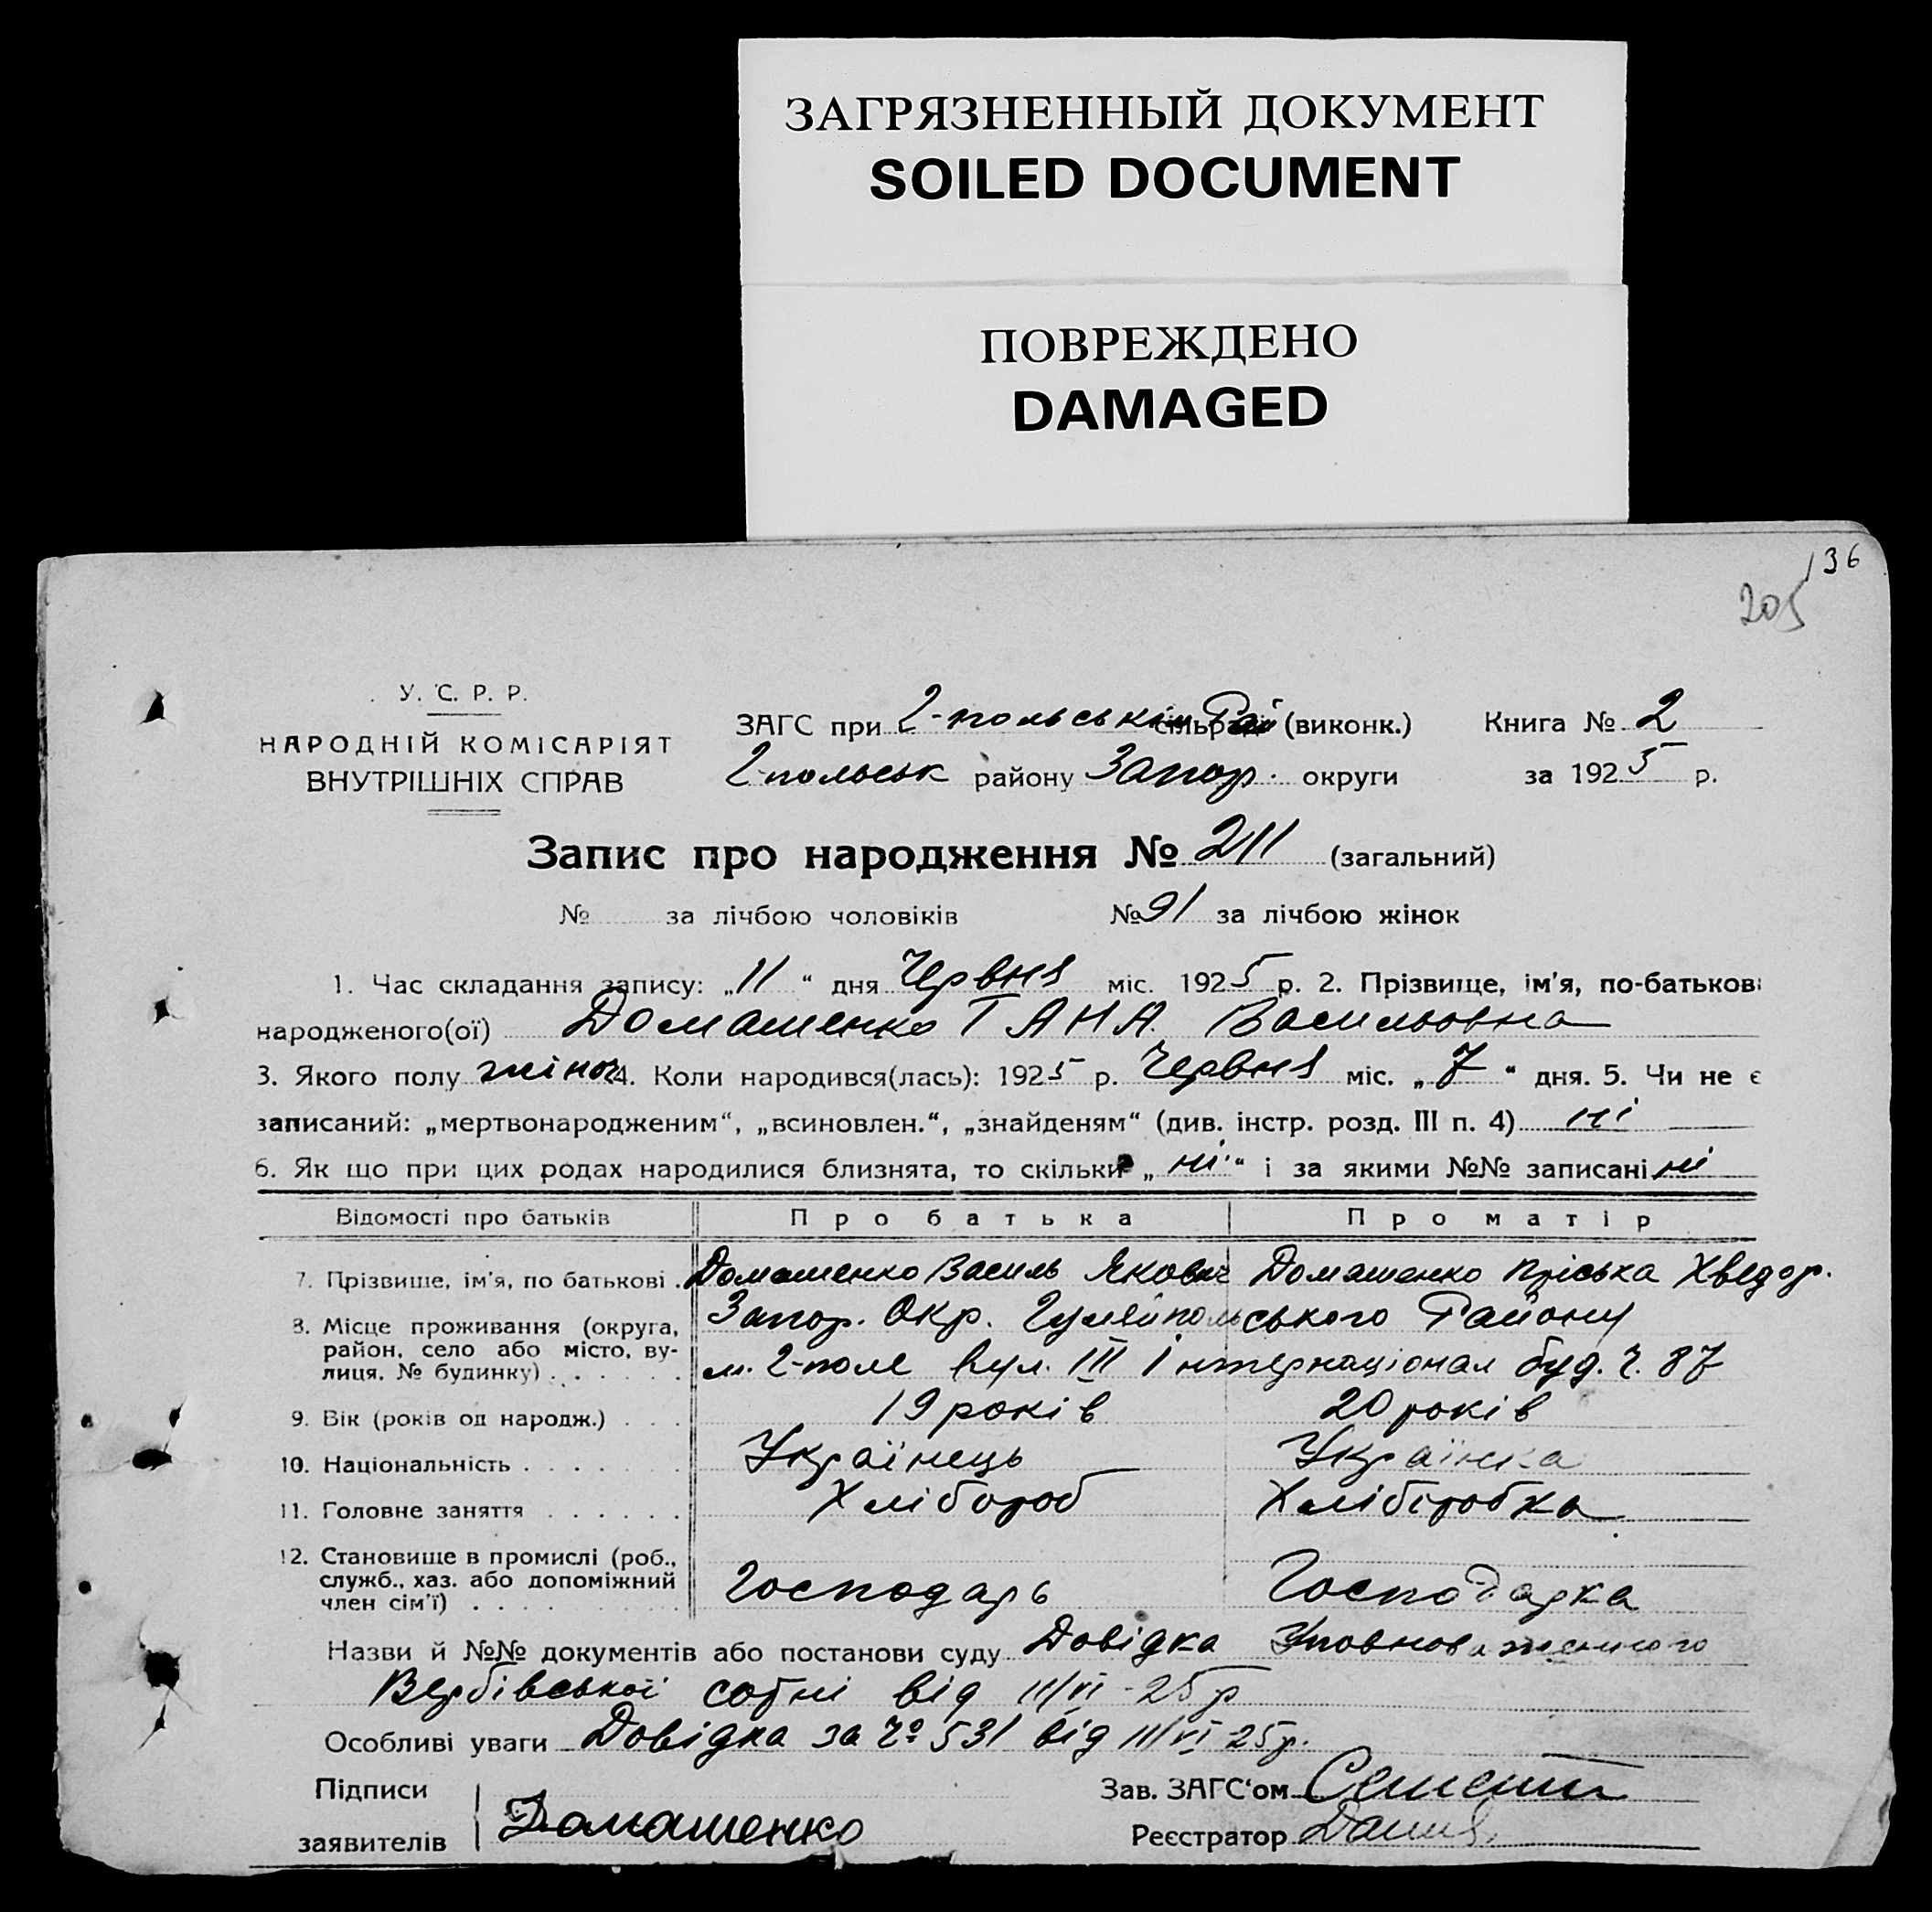 ЗАГРЯЗНЕННЫЙ ДОКУМЕНТ
SOILED DOCUMENT
ПОВРЕЖДЕНО
DAMAGED
136
205
У. С. Р. Р.
НАРОДНІЙ КОМІСАРІЯТ
ВНУТРІШНІХ СПРАВ
ЗАГС при Г-польськім Рай (виконк.) Книга № 2
Г-польськ району Запор. округи за 1925 р.
Запис про народження № 211 (загальний)
№ за лічбою чоловіків № 91 за лічбою жінок
1. Час складання запису: „11“ дня Червня міс. 1925 р. 2. Прізвище, ім'я, по-батькові
народженого(ої) Домашенко ГАНА Васильовна
3. Якого полу жіноч 4. Коли народився(лась): 1925 р. Червня міс. „7“ дня. 5. Чи не є
записаний: „мертвонародженим“, „всиновлен.“, „знайденям“ (див. інстр. розд. III п. 4) ні
6. Як що при цих родах народилися близнята, то скільки „ні“ і за якими №№ записані ні
Відомості про батьків Про батька Про матір
7. Прізвище, ім'я, по батькові . Домашенко Василь Якович Домашенко Пріська Хведор.
8. Місце проживання (округа, район, село або місто, вулиця, № будинку) . . . . . . Запор. Окр. Гуляйпольського Району
м. Г-поле вул. III Інтернаціонал буд. ч. 87
9. Вік (років од народж.) . . . 19 років 20 років
10. Національність . . . . . . . Українець Українка
11. Головне заняття . . . . . . Хлібороб Хліборобка
12. Становище в промислі (роб., служб., хаз. або допоміжний член сім'ї) . . . . Господарь Господарка
Назви й №№ документів або постанови суду Довідка Уповноваженого
Вербівської сотні від 11/VI-25р
Особливі уваги Довідка за Ч° 531 від 11/VI 25р.
Підписи
заявителів Домашенко
Зав. ЗАГС'ом
Реєстратор